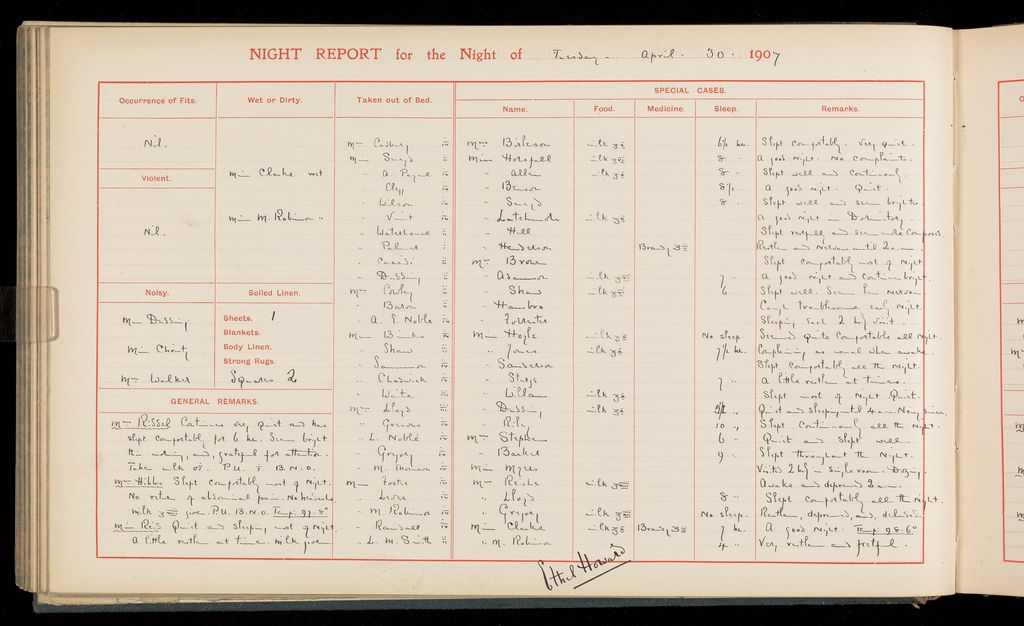 NIGHT REPORT for the Night of Tuesday April 30 1907
Occurrence of Fits.
Nil.
Violent.
Nil.
Noisy.
Miss Dussing
Miss Christy
Mrs Walker
Wet or Dirty.
Miss Clarke wet
Miss M. Robinson "
Soiled Linen.
Sheets. 1
Blankets.
Body Linen.
Strong Rugs.
Squares 2
GENERAL REMARKS.
Mrs Russel Continues very quiet and has
slept comfortably for 6 hrs. Seems bright
this morning, and grateful for attention.
Takes milk P.U. B.N.O.
Mrs Hibbs Slept comfortably most of night.
No return of abdominal pain. No headache
milk given P.U. B.N.O. Temp: 97.8°
Miss Reis Quiet and sleeping most of night.
A little restless at times. milk given
Taken out of Bed.
Mrs Cadbury
Miss Smeyd
" A. Payne
Clegg
" Wilson
" Vint
" Waterhouse
" Palmer
" Cassidi
" Dussing
Mrs Cowley
" Baron
" A. E. Noble
Miss Binks
" Shaw
" Sammon
" Chadwick
" Waite
Mrs Lloyd
" Greaves
" L. Noble
" Gregory
" M. Thomson
Miss Foster
" M. Robinson
" Randall
" L. M. Smith
SPECIAL CASES.
Name. Food. Medicine. Sleep. Remarks.
Mrs 6½ hrs. Slept comfortably. Very quiet.
Miss Horsfall milk 8 " A good night. No complaints.
" Allen milk 8 " Slept well and continuously.
" Benson 8½ " A good night. Quiet.
" Smeyd 8 " Slept well and seems brighter.
" Latchmore milk A good night in Dormitory.
" Hill Slept restfully and seems more composed.
" Henderson Brandy Restless and nervous until 2 a.m.
Mrs Brown Slept comfortably most of night
" Adamson milk 7 " A good night and continues bright.
" Shaw milk 6 " Slept well. Seems less nervous
" Hambro Cough troublesome early night.
" Forrester Sleeping each 2 hly visit.
Miss Hoyle milk No sleep Seemed quite comfortable all night.
" Jones milk 7½ hrs. Complaining as usual when awake.
" Sanderson Slept comfortably all the night.
" Sturge 7 " A little restless at times.
" Willans milk Slept most of night. Quiet.
" Dussing milk Quiet and sleeping until 4 a.m. Noisy since.
" Riley 10 " Slept continuously all the night.
Mrs Stephens 6 " Quiet and slept well.
" Barker 9 " Slept throughout the night.
Miss Myers Visited 2 hly in single room. Dozing.
Mrs milk Awake and depressed 2 a.m.
" Lloyd 8 " Slept comfortably all the night.
" Gregory milk No sleep. Restless, depressed, and deluded.
Miss Clarke milk Brandy 7 hrs. A good night. Temp: 98.6°
" M. Robinson 4 " Very restless and fretful.
Ethel Howard